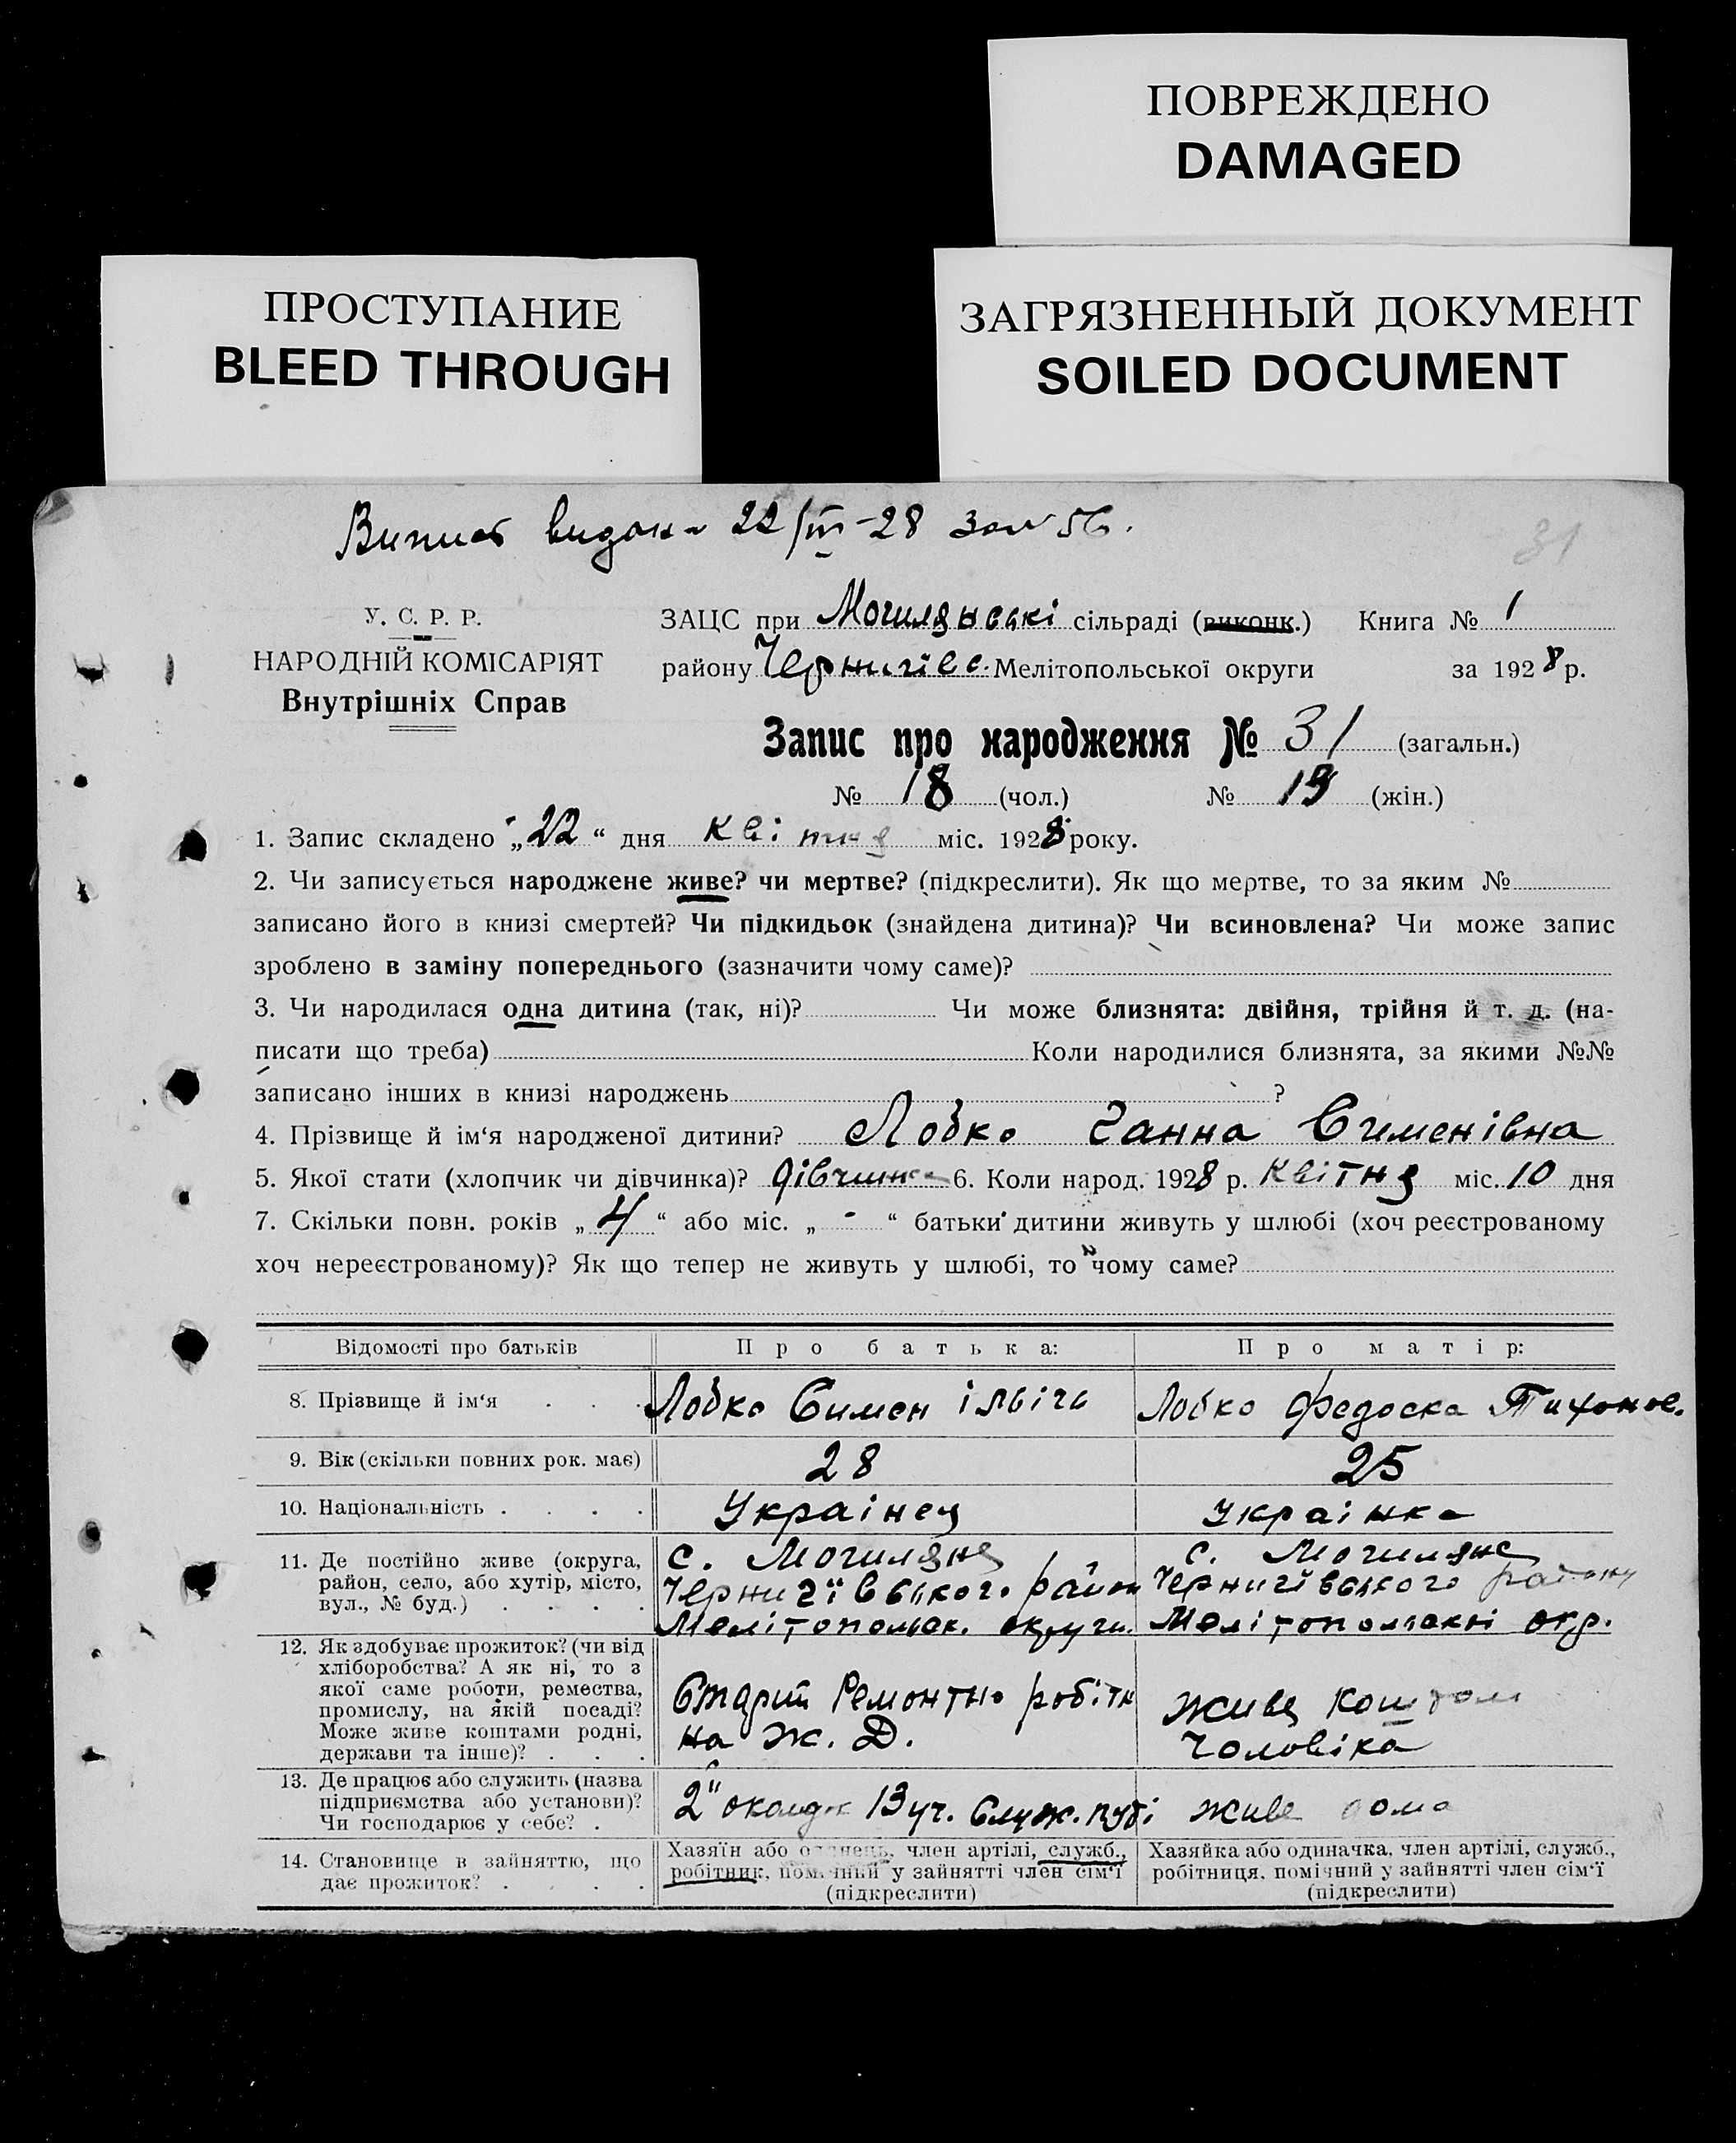 ПОВРЕЖДЕНО
DAMAGED
ПРОСТУПАНИЕ
BLEED THROUGH
ЗАГРЯЗНЕННЫЙ ДОКУМЕНТ
SOILED DOCUMENT
22/IV-28 56.
31
У. С. Р. Р.
НАРОДНІЙ КОМІСАРІЯТ
Внутрішніх Справ
ЗАЦС при Могилянські сільраді (виконк.) Книга № 1
району Чернигівс. Мелітопольської округи за 1928 р.
Запис про народження № 31 (загальн.)
№ 18 (чол.) № 13 (жін.)
1. Запис складено „22“ дня квітня міс. 1928 року.
2. Чи записується народжене живе? чи мертве? (підкреслити). Як що мертве, то за яким №
записано його в книзі смертей? Чи підкидьок (знайдена дитина)? Чи всиновлена? Чи може запис
зроблено в заміну попереднього (зазначити чому саме)?
3. Чи народилася одна дитина (так, ні)? Чи може близнята: двійня, трійня й т. д. (на-
писати що треба) Коли народилися близнята, за якими №№
записано інших в книзі народжень ?
4. Прізвище й ім‘я народженої дитини? Лобко Ганна Сименівна
5. Якої стати (хлопчик чи дівчинка)? дівчинка 6. Коли народ. 1928 р. квітня міс. 10 дня
7. Скільки повн. років „4“ або міс. „-“ батьки дитини живуть у шлюбі (хоч реєстрованому
хоч нереєстрованому)? Як що тепер не живуть у шлюбі, то чому саме?
Відомості про батьків Про батька: Про матір:
8. Прізвище й ім‘я Лобко Симен ілвічь Лобко Федоска Тихонов.
9. Вік (скільки повних рок. має) 28 25
10. Національність Украінец Украінка
11. Де постійно живе (округа, район, село, або хутір, місто, вул., № буд.)
с. Могиляне
Чернигівського район
Мелітопольск. округи.
с. Могиляне
Чернигівського району
Мелітопольскі окр.
12. Як здобуває прожиток? (чи від хліборобства? А як ні, то з якої саме роботи, ремества, промислу, на якій посаді? Може живе коштами родні, держави та інше)?
Старш Ремонтно робітн
на Ж. Д.
живе коштом
Чоловіка
13. Де працює або служить (назва підприємства або установи)? Чи господарює у себе?
2" околдк 13 уч. Служ. путі
живе дома
14. Становище в зайняттю, що дає прожиток?
Хазяїн або одинець, член артілі, служб.,
робітник, помічный у зайнятті член сім‘ї
(підкреслити)
Хазяйка або одиначка, член артілі, служб.,
робітниця, помічний у зайнятті член сім‘ї
(підкреслити)